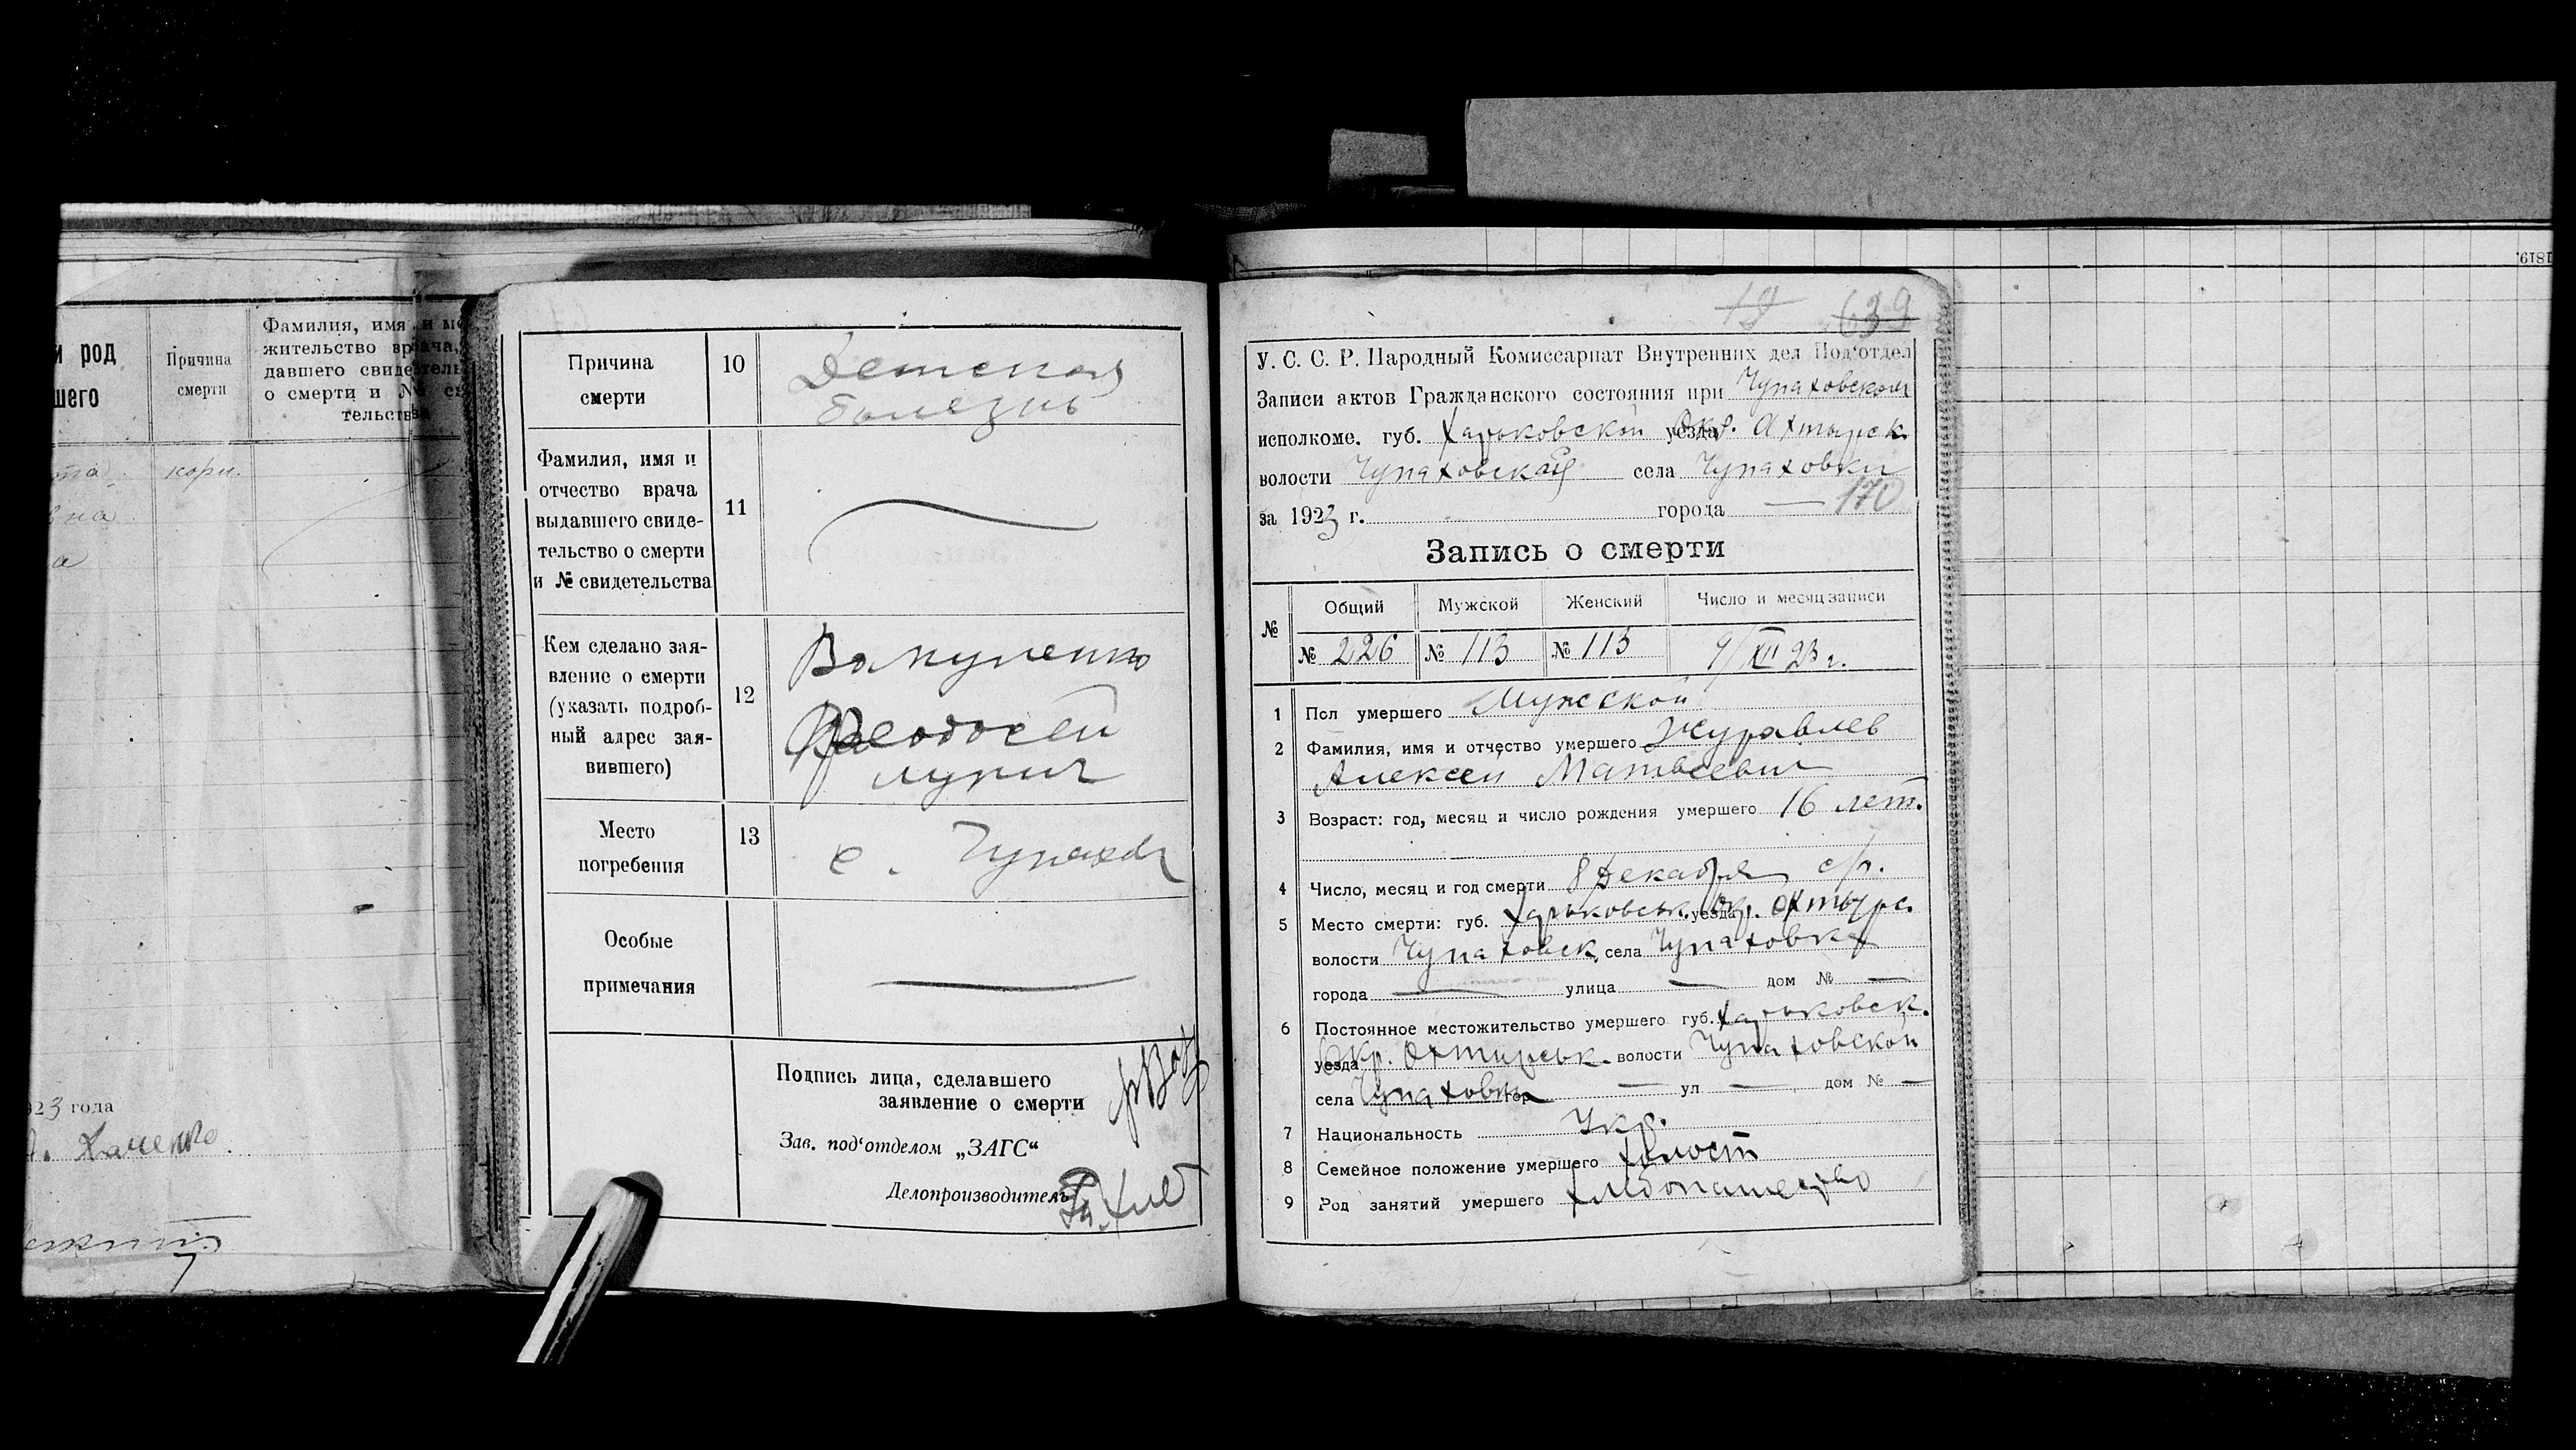 и род
шего
Причина
смерти
Фамилия, имя и ме
жительство врача,
давшего свидетель
о смерти и № св
тельства
кори.
вна
а
923 года
Причина
смерти
10
Детская
болезнь
Фамилия, имя и
отчество врача
выдавшего свиде-
тельство о смерти
и № свидетельства
11
Кем сделано зая-
вление о смерти
(указать подроб-
ный адрес зая-
вившего)
12
Вакуленко
Феодосей
Лукич
Место
погребения
13
с. Чупахов
Особые
примечания
Подпись лица, сделавшего
заявление о смерти
Зав. под‘отделом „ЗАГС“
Делопроизводитель
19 639
У. С. С. Р. Народный Комиссариат Внутренних дел Под‘отдел
Записи актов Гражданского состояния при Чупаховском
исполкоме. губ. Харьковской уезда Окр. Ахтырск.
волости Чупаховской села Чупаховки
за 1923 г. города — 170
Запись о смерти
№ Общий Мужской Женский Число и месяц записи
№ 226 № 113 № 113 9/XII 23 г.
1 Пол умершего Мужской
2 Фамилия, имя и отчество умершего Журавлев
Алексей Матвеевич
3 Возраст: год, месяц и число рождения умершего 16 лет.
4 Число, месяц и год смерти 8 Декабря с/г.
5 Место смерти: губ. Харьковськ. уезда Окр. Охтырс.
волости Чупаховск. села Чупаховка
города — улица — дом № —
6 Постоянное местожительство умершего губ. Харьковск.
уезда Окр. Охтирськ. волости Чупаховской
села Чупаховка гор — ул — дом № —
7 Национальность Укр.
8 Семейное положение умершего Холост
9 Род занятий умершего Хлебопашество
1819.